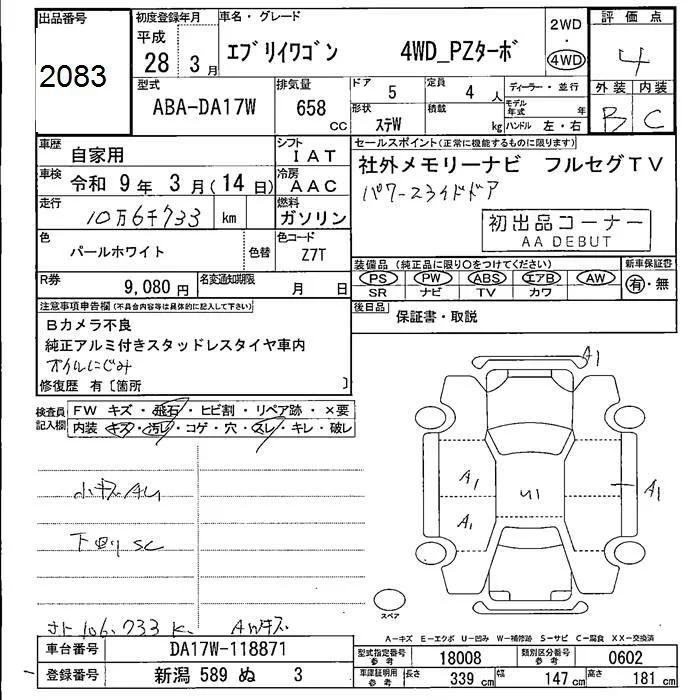 出品番号
2083
初度登録年月
平成
28 3月
車名・グレード
エブリイワゴン 4WD_PZターボ
2WD
・
4WD
評価点
4
外装 内装
B C
型式
ABA-DA17W
排気量
658
CC
ドア
5
定員
4 人
形状
ステW
積載
kg
ディーラー・並行
モデル年式 年
ハンドル 左・右
車歴
自家用
シフト
IAT
車検
令和 9年 3月(14日)
冷房
AAC
走行
10万6千733 km
燃料
ガソリン
色
パールホワイト
色替
色コード
Z7T
R券
9,080円
名変通知期限
月 日
セールスポイント(正常に機能するものに限ります)
社外メモリーナビ フルセグTV
パワースライドドア
初出品コーナー
AA DEBUT
装備品(純正品に限り○をつけてください)
PS PW ABS エアB AW
SR ナビ TV カワ
新車保証書
有・無
後日品
保証書・取説
注意事項申告欄(不具合内容等は具体的に記入して下さい)
Bカメラ不良
純正アルミ付きスタッドレスタイヤ車内
オイルにじみ
修復歴 有〔箇所 〕
検査員記入欄
FW キズ・飛石・ヒビ割・リペア跡・×要
内装 キズ・汚レ・コゲ・穴・スレ・キレ・破レ
小キズAU
下回りSC
メーター106,733K
AWキズ
A1
A1
A1
U1
A1
スペア
A-キズ E-エクボ U-凹み W-補修跡 S-サビ C-腐食 XX-交換済
車台番号
DA17W-118871
登録番号
新潟 589 ぬ 3
型式指定番号
参考
18008
類別区分番号
参考
0602
車庫証明用
参考
長さ
339 cm
幅
147 cm
高さ
181 cm